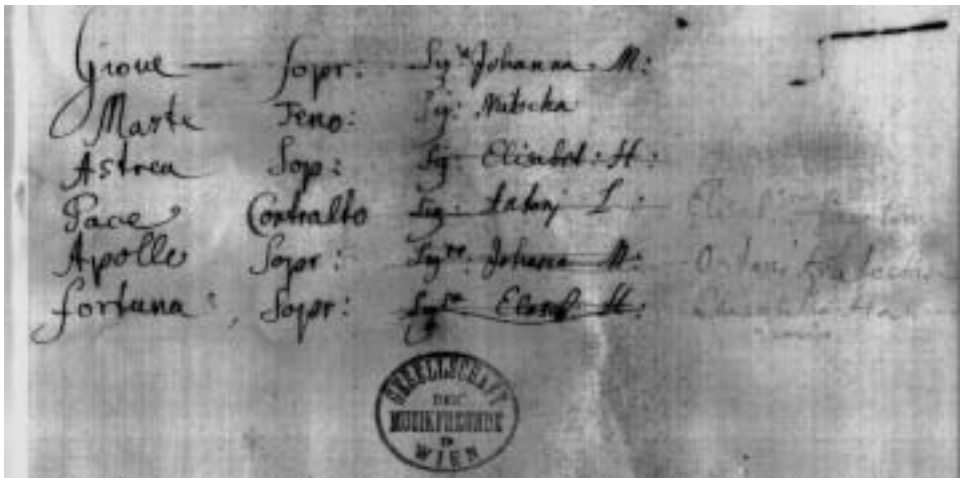 Gioue Sopr: Sigra Johanna M:
Marte Teno: Sig: Nitscha
Astrea Sop: Sig: Elisabet: H:
Pace Contralto Sig: L:
Apollo Sopr: Sigra: Johana M:
fortuna: Sopr: Sigra H:
GESELLSCHAFT
DER
MUSIKFREUNDE
IN
WIEN